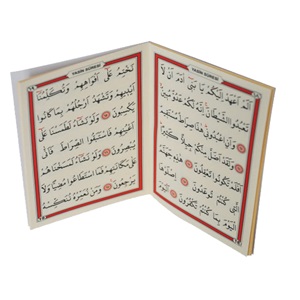 اَلَمْ اَعْهَدْ اِلَيْكُمْ يَا بَنِي اٰدَمَ اَنْ لَا
تَعْبُدُوا الشَّيْطَانَ اِنَّهُ لَكُمْ عَدُوٌّ مُبِينٌ
وَاَنِ اعْبُدُونِي هٰذَا صِرَاطٌ مُسْتَقِيمٌ
وَلَقَدْ اَضَلَّ مِنْكُمْ جِبِلًّا كَثِيرًا
اَفَلَمْ تَكُونُوا تَعْقِلُونَ هٰذِهِ جَهَنَّمُ
الَّتِي كُنْتُمْ تُوعَدُونَ اِصْلَوْهَا
الْيَوْمَ بِمَا كُنْتُمْ تَكْفُرُونَ اَلْيَوْمَ
نَخْتِمُ عَلٰى اَفْوَاهِهِمْ وَتُكَلِّمُنَا
اَيْدِيهِمْ وَتَشْهَدُ اَرْجُلُهُمْ بِمَا كَانُوا
يَكْسِبُونَ وَلَوْ نَشَاءُ لَطَمَسْنَا عَلٰى
اَعْيُنِهِمْ فَاسْتَبَقُوا الصِّرَاطَ فَاَنّٰى
يُبْصِرُونَ وَلَوْ نَشَاءُ لَمَسَخْنَاهُمْ
عَلٰى مَكَانَتِهِمْ فَمَا اسْتَطَاعُوا مُضِيًّا وَلَا
يَرْجِعُونَ وَمَنْ نُعَمِّرْهُ نُنَكِّسْهُ